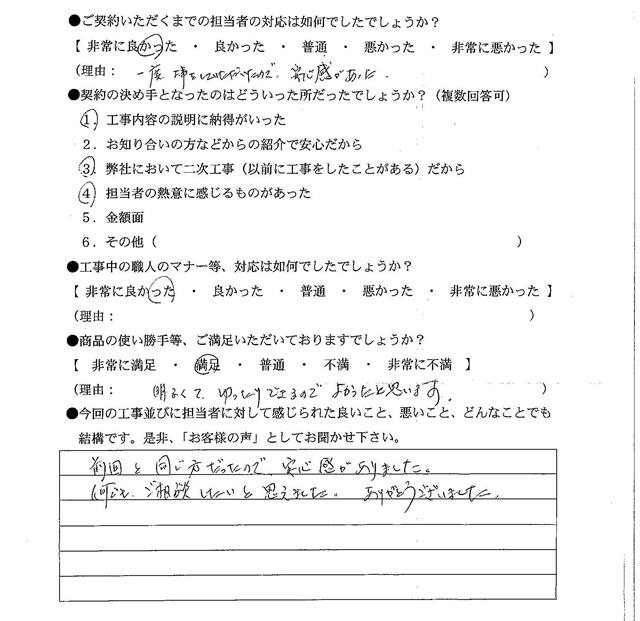 ●ご契約いただくまでの担当者の対応は如何でしたでしょうか？
【 非常に良かった ・ 良かった ・ 普通 ・ 悪かった ・ 非常に悪かった 】
（理由： 一度 工事をしていただいたので、安心感があった。 ）
●契約の決め手となったのはどういった所だったでしょうか？（複数回答可）
1．工事内容の説明に納得がいった
2．お知り合いの方などからの紹介で安心だから
3．弊社において二次工事（以前に工事をしたことがある）だから
4．担当者の熱意に感じるものがあった
5．金額面
6．その他（ ）
●工事中の職人のマナー等、対応は如何でしたでしょうか？
【 非常に良かった ・ 良かった ・ 普通 ・ 悪かった ・ 非常に悪かった 】
（理由： ）
●商品の使い勝手等、ご満足いただいておりますでしょうか？
【 非常に満足 ・ 満足 ・ 普通 ・ 不満 ・ 非常に不満 】
（理由： 明るくて、ゆったりできるので よかったと思います。 ）
●今回の工事並びに担当者に対して感じられた良いこと、悪いこと、どんなことでも
結構です。是非、「お客様の声」としてお聞かせ下さい。
前回と同じ方だったので、安心感がありました。
何でも、ご相談したいと思えました。 ありがとうございました。